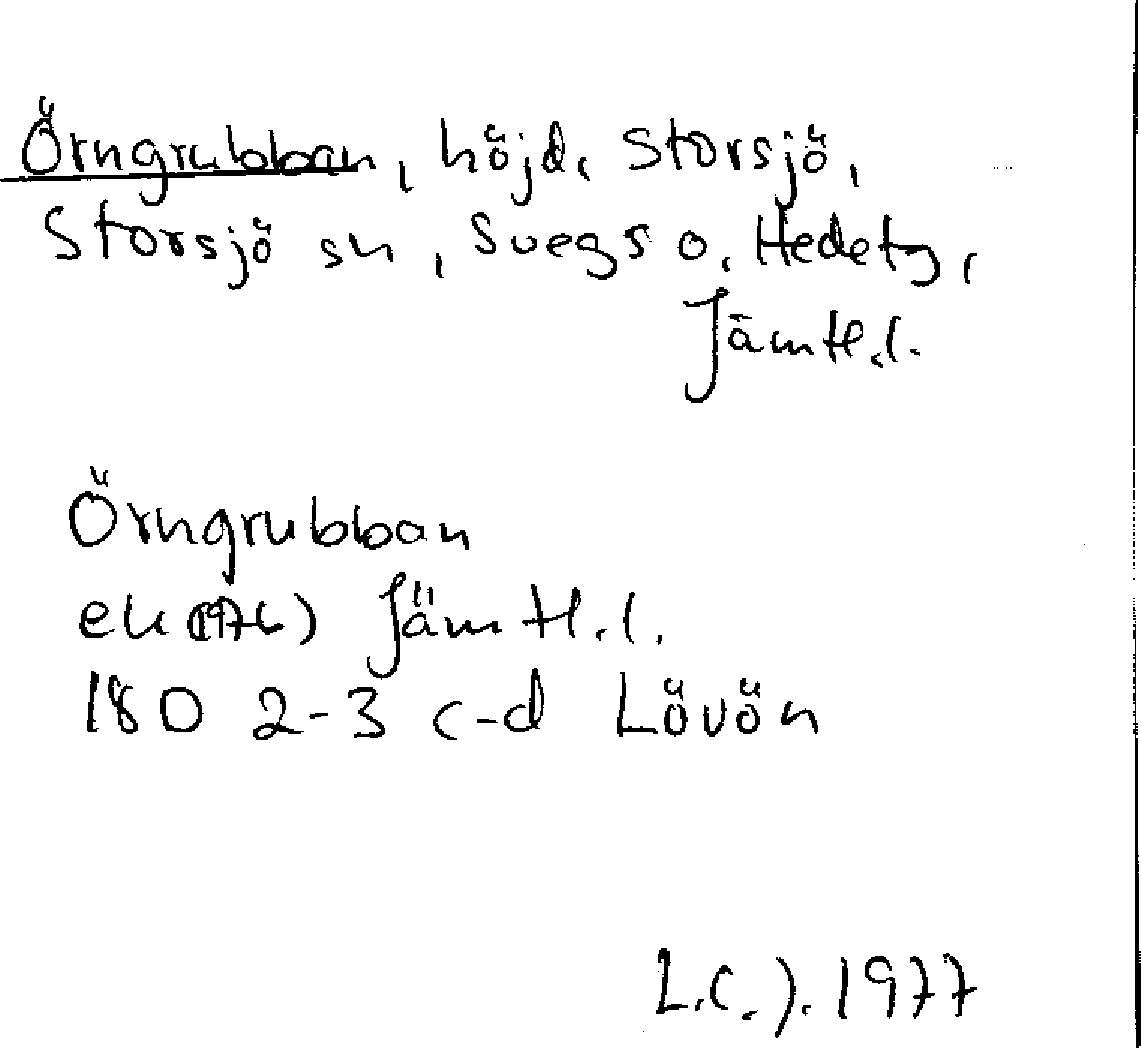 Örngrubban, höjd, Storsjö,
Storsjö sn, Svegs o, Hedetg,
Jämtl.l.
Örngrubban
ek (1976) Jämtl.l.
180 2-3 c-d Lövön
L.C.J. 1977